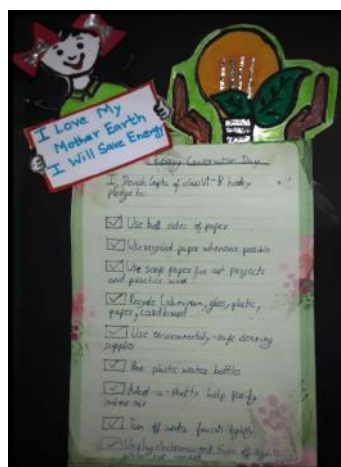 I Love My
Mother Earth
I Will Save Energy
Energy Conservation Day
I, of class VI-B
pledge to:
Use both sides of paper
Use recycled paper whenever possible
Use scrap paper for art projects
and practice work
Recycle (aluminum, glass, plastic,
paper, cardboard
Use environmentally-safe cleaning
supplies
plastic water bottles
Adopt-a- help purify
indoor air
Turn off water faucets tightly
Unplug electronics and turn off lights
when not needed